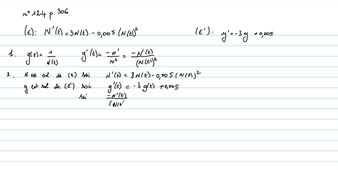 n° 124 p. 306
(E): N'(t) = 3N(t) - 0,005 (N(t))² (E'): y' = -3y + 0,005
1. g(t) = 1/N(t) g'(t) = -N'/N² = -N'(t)/(N(t))²
2. N est sol. de (E) ssi N'(t) = 3N(t) - 0,005 (N(t))²
g est sol de (E') ssi g'(t) = -3g(t) + 0,005
ssi -N'(t)/(N(t)